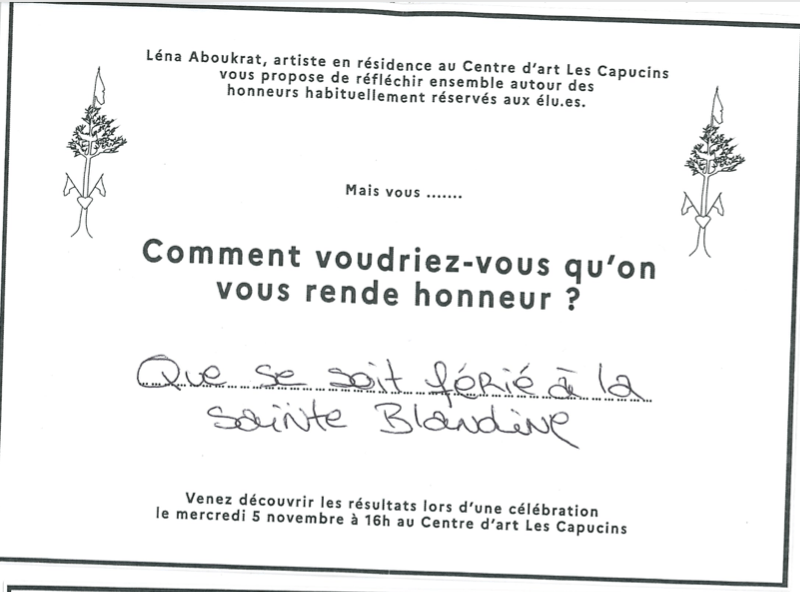 Léna Aboukrat, artiste en résidence au Centre d'art Les Capucins
vous propose de réfléchir ensemble autour des
honneurs habituellement réservés aux élu.es.
Mais vous .......
Comment voudriez-vous qu'on
vous rende honneur ?
Que se soit férié à la
Sainte Blandine
Venez découvrir les résultats lors d'une célébration
le mercredi 5 novembre à 16h au Centre d'art Les Capucins